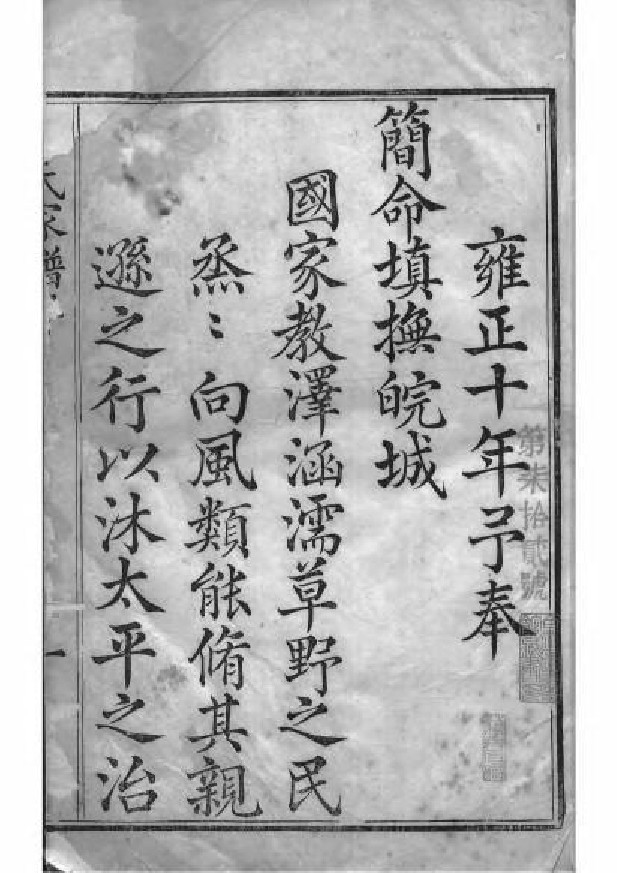 雍正十年予奉
簡命填撫皖城
國家教澤涵濡草野之民
烝〻向風類能脩其親
遜之行以沐太平之治
氏家譜
一
第柒拾貳號